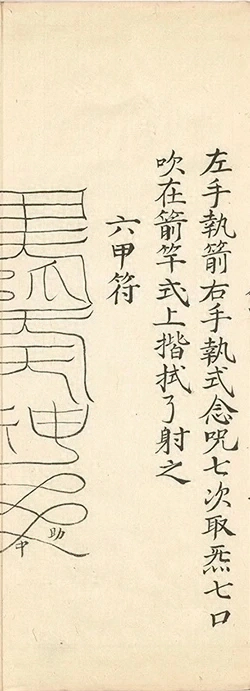 左手執箭右手執式念呪七次取炁七口
吹在箭竿式上揩拭了射之
六甲符
助
中